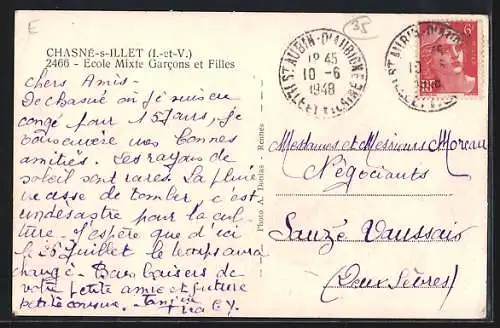 E
35
CHASNÉ-s-ILLET (I.-et-V.)
2466 - Ecole Mixte Garçons et Filles
ST AUBIN-D'AUBIGNÉ
12 45
10 - 6
1948
ILLE ET VILAINE
chers Amis -
De chasné où je suis en
congé pour 15 jours, je
vous envoie mes bonnes
amitiés. Les rayons de
soleil sont rares. La pluie
ne cesse de tomber, c'est
un désastre pour la cul-
ture. J'espère que d'ici
le 25 Juillet le temps aura
changé - Bons baisers de
votre petite amie et future
petite cousine.
Photo A. Donias - Rennes
Mesdames et Messieurs Moreau
Négociants
Sauzé Vaussais
(Deux Sèvres)